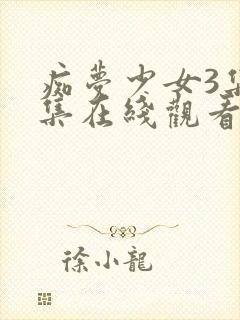 痴夢少女3集
集在綫觀看
徐小龍